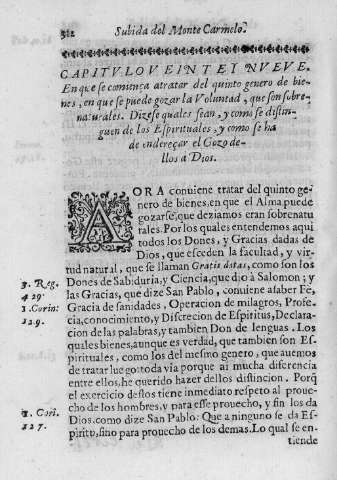 312 Subida del Monte Carmelo.
CAPITVLO VEINTE I NVEVE.
En que se comiença atratar del quinto genero de bie-
nes, en que se puede gozar la Voluntad, que son sobre-
naturales. Dize se quales sean, y como se distin-
guen de los Espirituales, y como se ha
de endereçar el Gozo de-
llos à Dios.
AORA conuiene tratar del quinto ge-
nero de bienes, en que el Alma puede
gozarse, que deziamos eran sobrenatu
rales. Por los quales entendemos aqui
todos los Dones, y Gracias dadas de
Dios, que esceden la facultad, y vir-
tud natural, que se llaman Gratis datas, como son los
3. Reg. Dones de Sabiduria, y Ciencia, que dio à Salomon; y
4 29. las Gracias, que dize San Pablo, conuiene asaber Fe,
1. Corin: Gracia de sanidades, Operacion de milagros, Profe-
12.9. cia, conocimiento, y Discrecion de Espiritus, Declara
cion de las palabras, y tambien Don de lenguas. Los
quales bienes, aunque es verdad, que tambien son Es-
pirituales, como los del mesmo genero, que auemos
de tratar luego: toda via porque ai mucha diferencia
entre ellos, he querido hazer dellos distincion. Porq̃
el exercicio destos tiene inmediato respeto al proue-
cho de los hombres, y para esse prouecho, y fin los da
1. Cori. Dios. como dize San Pablo: Que a ninguno se da Es-
12 7. piritu, sino para prouecho de los demas. Lo qual se en-
tiende